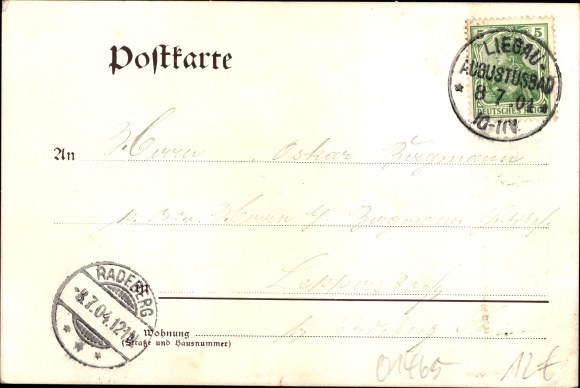 Postkarte
5 5
DEUTSCHES REICH
LIEGAU-
AUGUSTUSBAD
8 7.04
10-11V.
An Herrn Oskar Bergmann
Herrn Bergmann
Leppersdorf
RADEBERG
-8.7.04.12-1N.
Wohnung
(Straße und Hausnummer)
01465 12€